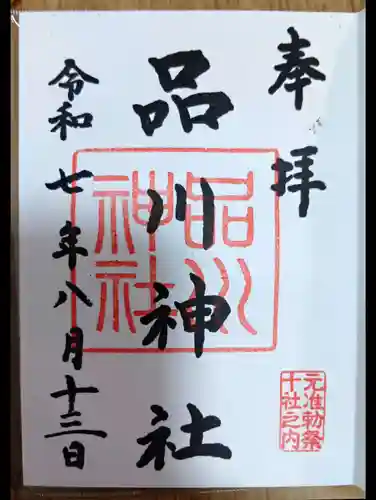 奉拝
品川神社
令和七年八月十三日
品川
神社
元准勅祭
十社之内